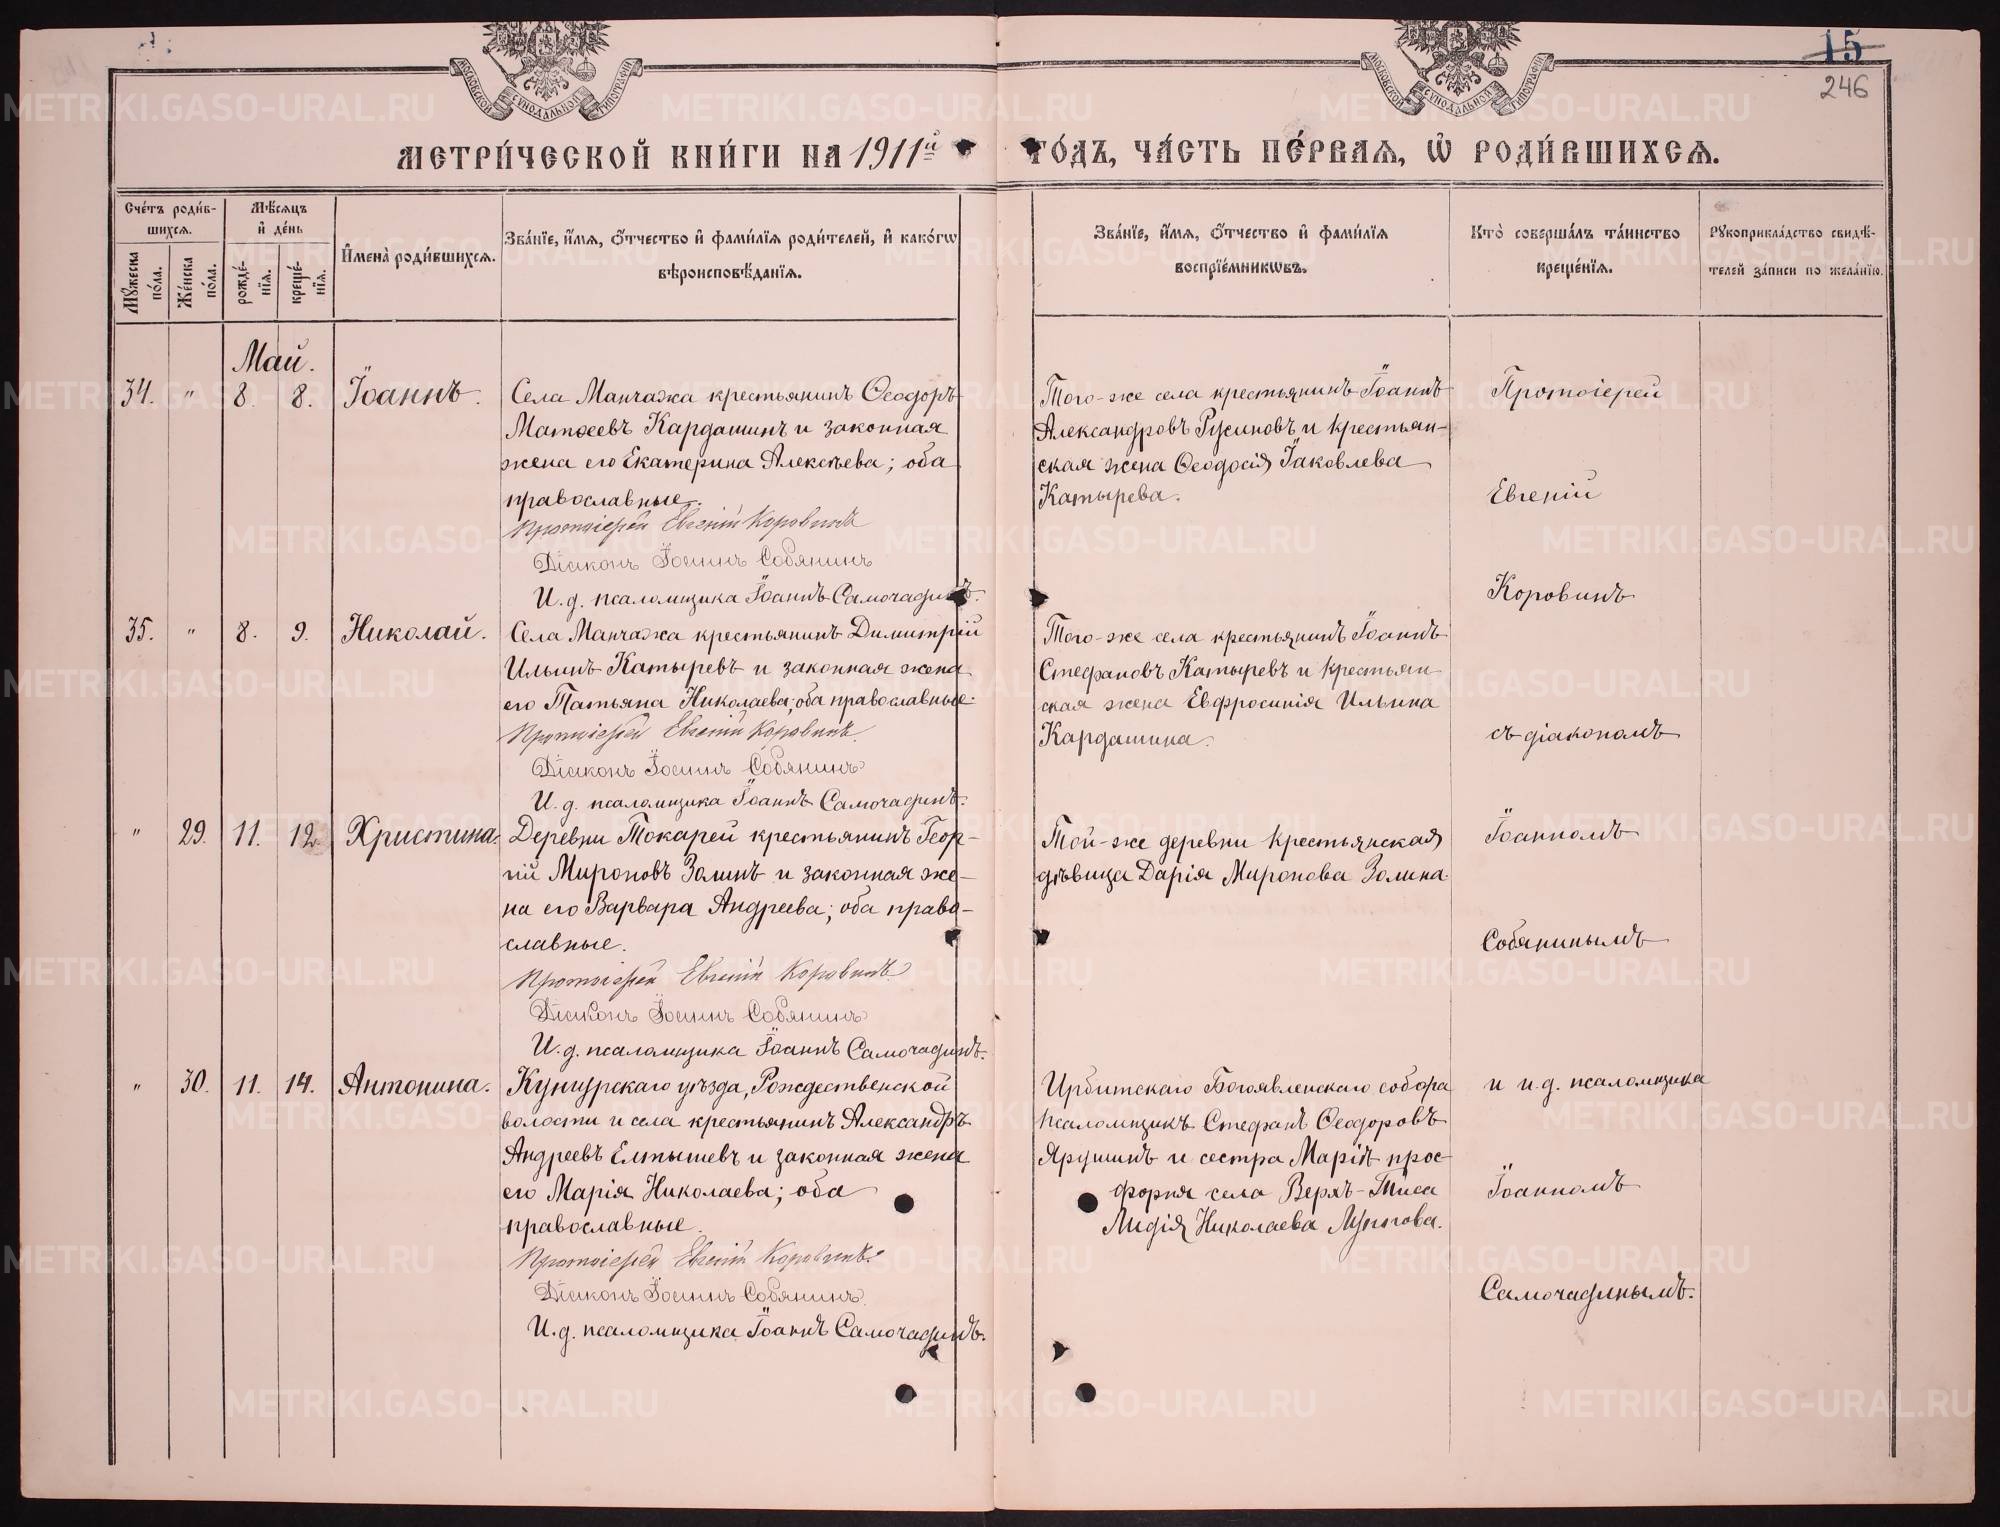 15
246
МОСКОВСКОЙ СѴНОДАЛЬНОЙ ТИПОГРАФІИ
МОСКОВСКОЙ СѴНОДАЛЬНОЙ ТИПОГРАФІИ
МЕТРИ́ЧЕСКОЙ КНИ́ГИ НА 1911й
ГО́ДЪ, ЧА́СТЬ ПЕ́РВАЯ, Ѡ РОДИ́ВШИХСЯ.
Сче́тъ роди́в-
шихся.
Мѣ́сяцъ
и де́нь
Му́жеска по́ла.
Же́нска по́ла.
рожде́-
нія.
креще́-
нія.
Имена̀ роди́вшихся.
Зва́ніе, и́мя, о́тчество и фами́лія роди́телей, и како́гѡ
вѣроисповѣ́данія.
Зва́ніе, и́мя, о́тчество и фами́лія
воспріе́мникѡвъ.
Кто̀ соверша́лъ та́инство
креще́нія.
Рукоприкла́дство свидѣ́-
телей за́писи по жела́нію.
Май.
34. " 8. 8. Іоаннъ.
Села Манчажа крестьянинъ Ѳеодоръ
Матѳеевъ Кардашинъ и законная
жена его Екатерина Алексѣева; оба
православные.
Протоіерей Евгеній Коровинъ
Діаконъ Іоаннъ Собянинъ
И. д. псаломщика Іоаннъ Самочадинъ.
Того-же села крестьянинъ Іоаннъ
Александровъ Русиновъ и крестьян-
ская жена Ѳеодосія Іаковлева
Катырева.
35. " 8. 9. Николай.
Села Манчажа крестьянинъ Димитрій
Ильинъ Катыревъ и законная жена
его Татьяна Николаева; оба православные.
Протоіерей Евгеній Коровинъ.
Діаконъ Іоаннъ Собянинъ
И. д. псаломщика Іоаннъ Самочадинъ.
Того-же села крестьянинъ Іоаннъ
Стефановъ Катыревъ и крестьян-
ская жена Евфросинія Ильина
Кардашина.
" 29. 11. 12. Христина.
Деревни Токарей крестьянинъ Геор-
гій Мироновъ Золинъ и законная же-
на его Варвара Андреева; оба право-
славные.
Протоіерей Евгеній Коровинъ
Діаконъ Іоаннъ Собянинъ
И. д. псаломщика Іоаннъ Самочадинъ.
Той-же деревни крестьянская
дѣвица Дарія Миронова Золина.
" 30. 11. 14. Антонина.
Кунгурскаго уѣзда, Рождественской
волости и села крестьянинъ Александръ
Андреевъ Елтышевъ и законная жена
его Марія Николаева; оба
православные.
Протоіерей Евгеній Коровинъ.
Діаконъ Іоаннъ Собянинъ.
И. д. псаломщика Іоаннъ Самочадинъ.
Ирбитскаго Богоявленскаго собора
псаломщикъ Стефанъ Ѳеодоровъ
Ярушинъ и сестра Маріи прос-
форня села Верхъ-Тиса
Лидія Николаева Луппова.
Протоіерей
Евгеній
Коровинъ
съ діакономъ
Іоанномъ
Собянинымъ
и и. д. псаломщика
Іоанномъ
Самочадинымъ.